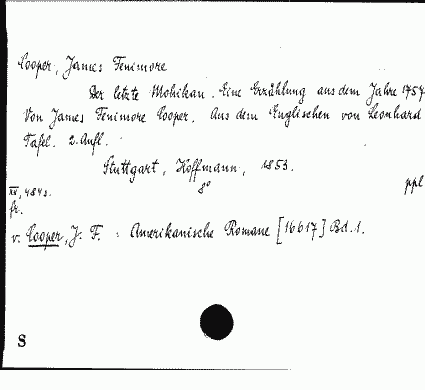 Cooper, James Fenimore
Der letzte Mohikan. Eine Erzählung aus dem Jahre 1757
Von James Fenimore Cooper. Aus dem Englischen von Leonhard
Tafel. 2. Aufl.
Stuttgart, Hoffmann, 1853.
XX, 484 s. 8° ppl
fr.
v. Cooper, J. F. : Amerikanische Romane [16617] Bd. 1.
S